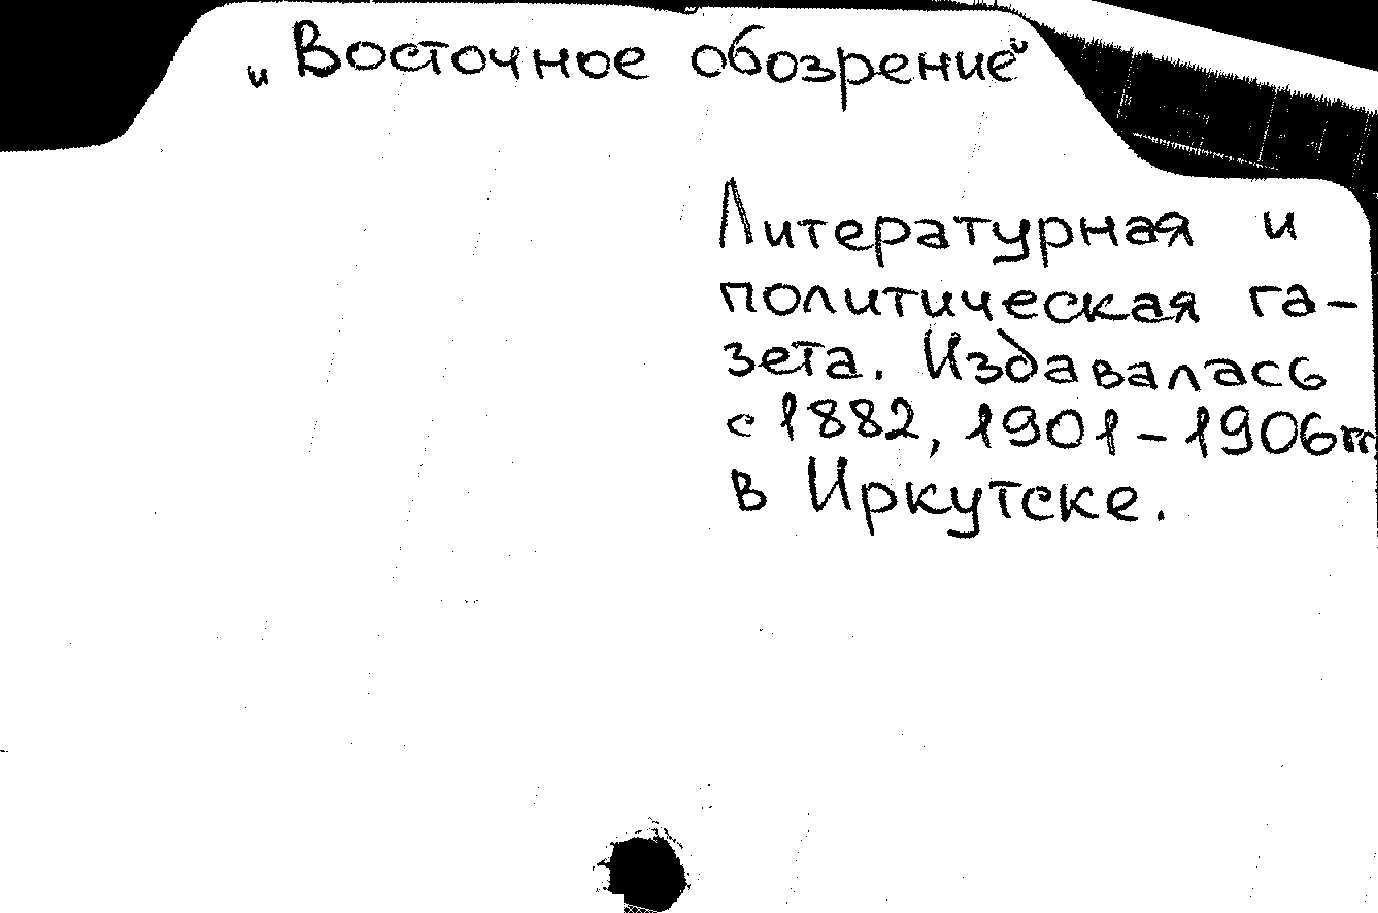 „Восточное обозрение“
Литературная и
политическая га-
зета. Издавалась
с 1882, 1901-1906гг.
в Иркутске.